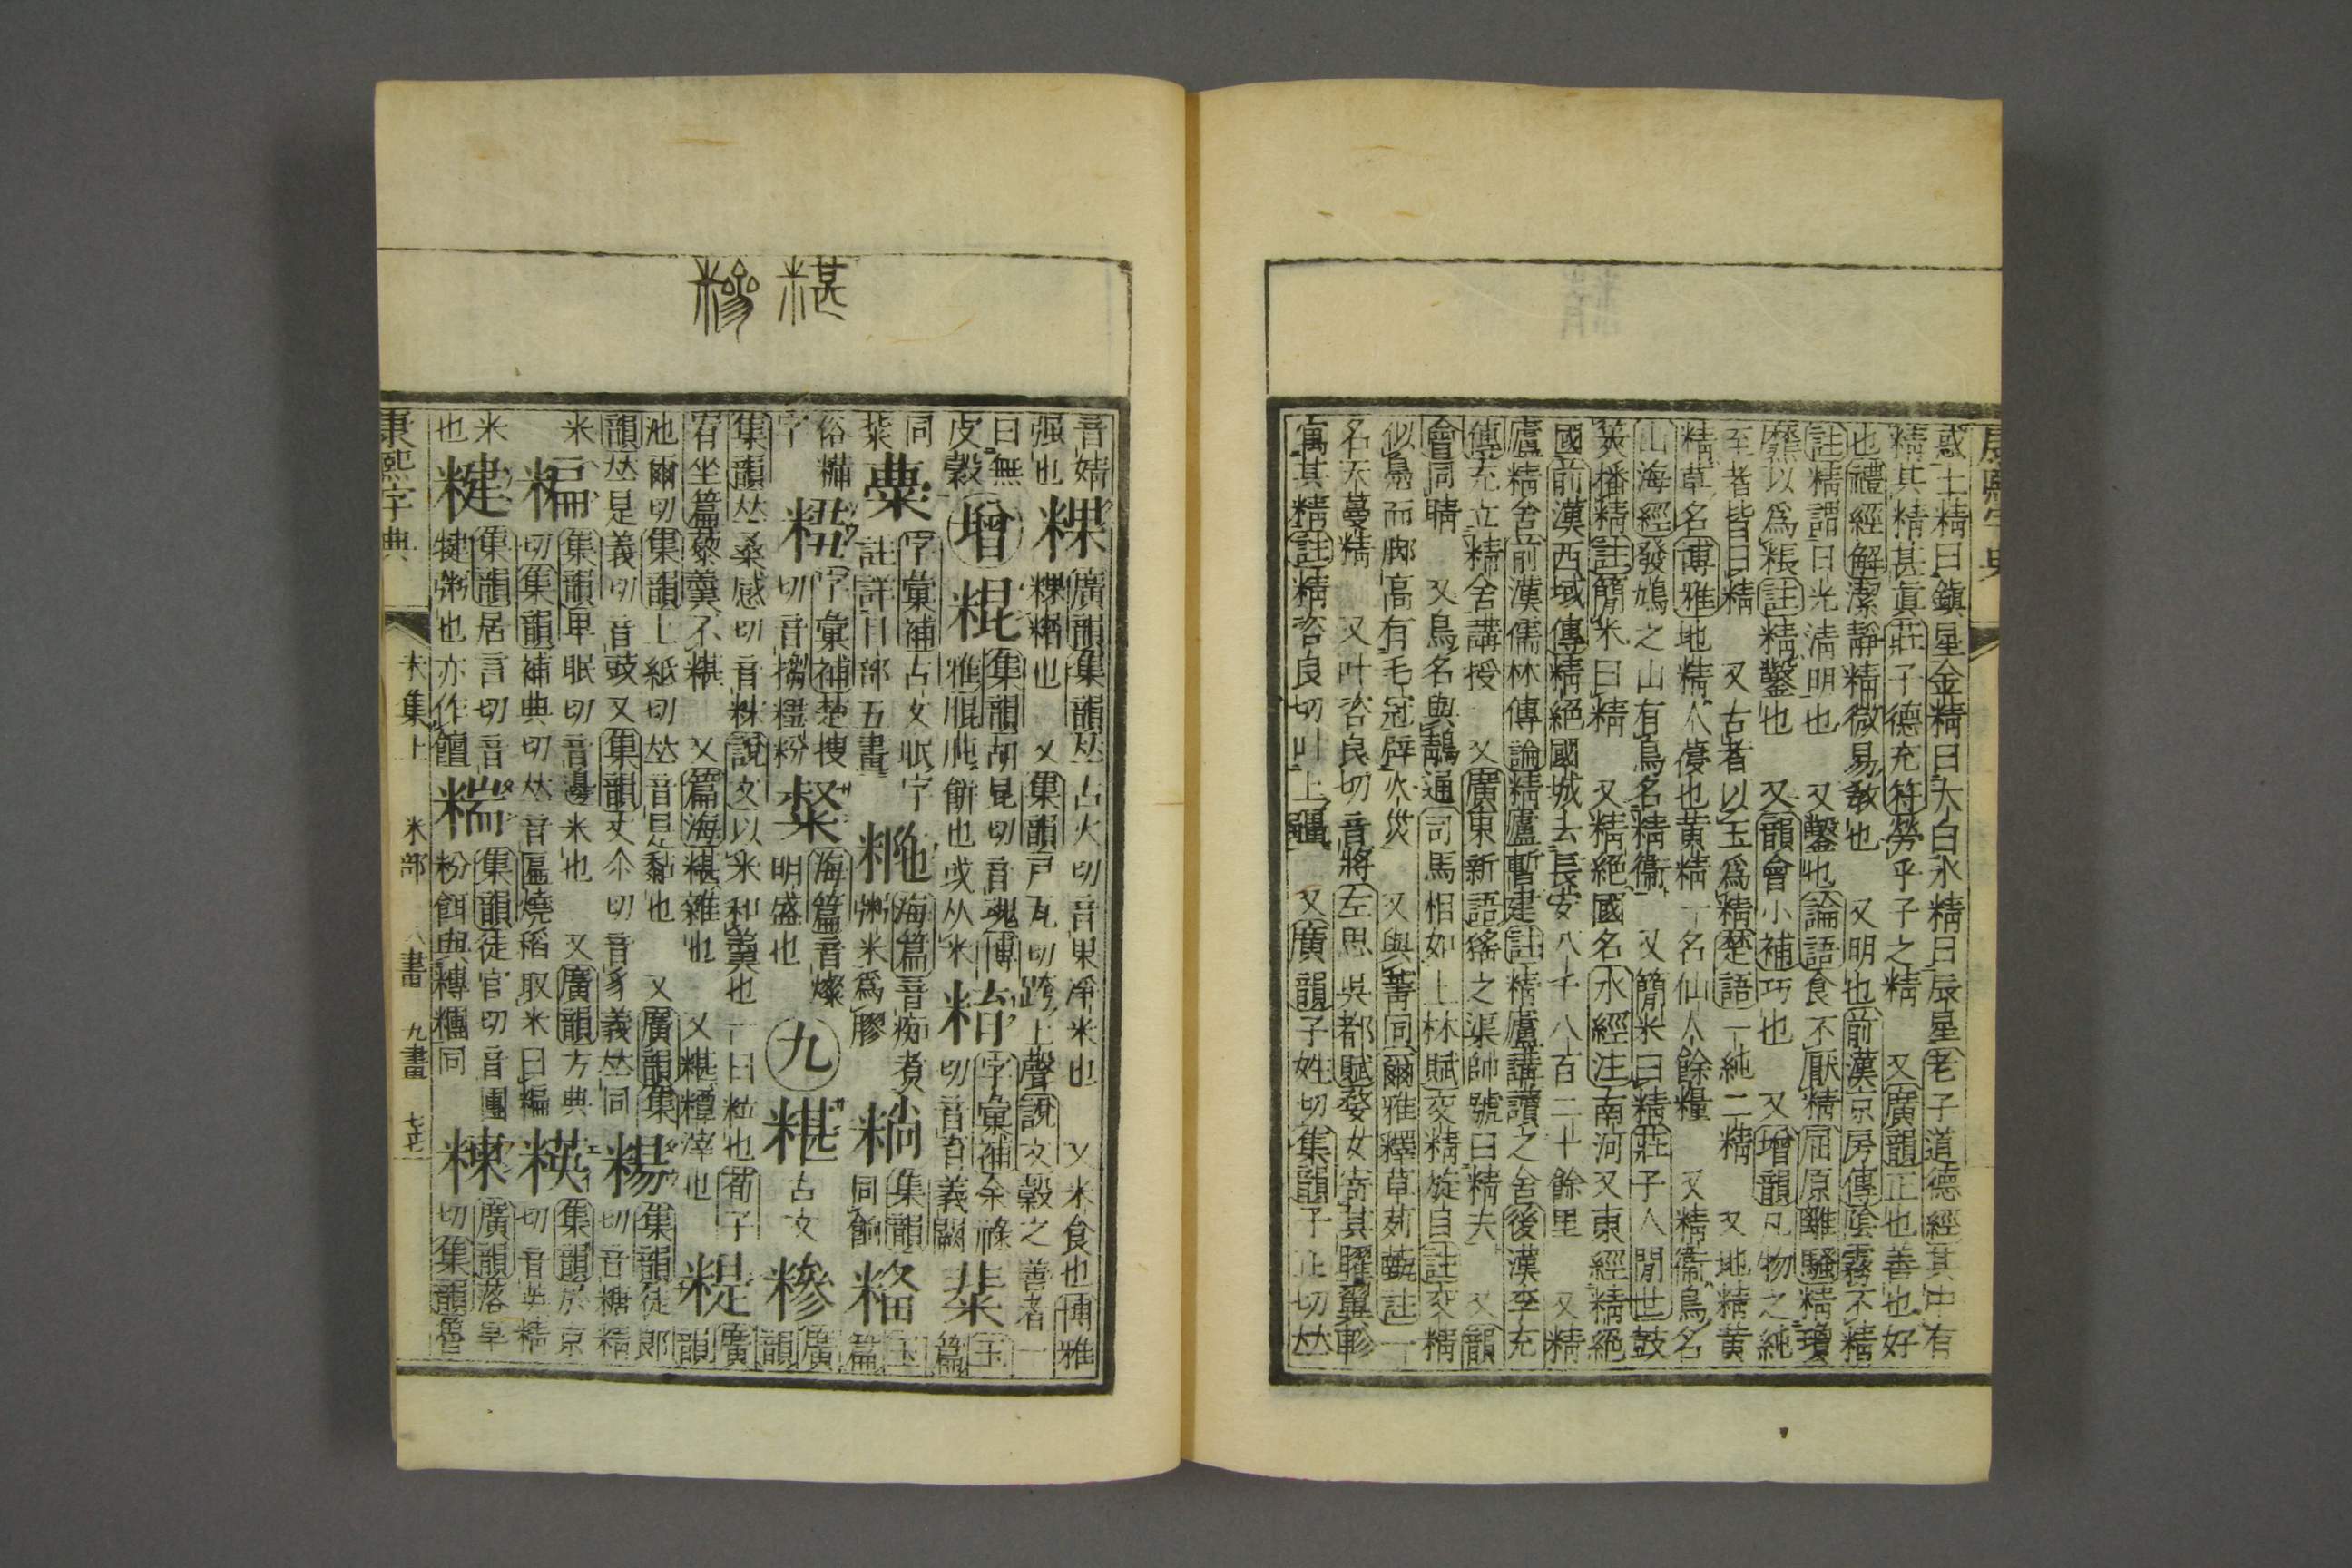 惑土精曰鎭星金精曰太白水精曰辰星老子道德經其中有
精其精甚眞莊子德充符勞乎子之精 又廣韻正也善也好
也禮經解潔靜精微易敎也 又明也前漢京房傳陰霧不精
註精謂日光淸明也 又鑿也論語食不厭精屈原離騷精瓊
爢以爲粻註精鑿也 又韻會小補巧也 又增韻凡物之純
至者皆曰精 又古者以玉爲精楚語一純二精 又地精黃
精草名博雅地精人葠也黃精一名仙人餘糧 又精衞鳥名
山海經發鳩之山有鳥名精衞 又簡米曰精莊子人閒世鼓
筴播精註簡米曰精 又精絕國名水經注南河又東經精絕
國前漢西域傳精絕國城去長安八千八百二十餘里 又精
廬精舍前漢儒林傳論精廬暫建註精廬講讀之舍後漢李充
傳充立精舍講授 又廣東新語猺之渠帥號曰精夫 又韻
會同睛 又鳥名與鶄通司馬相如上林賦交精旋目註交精
似鳧而脚高有毛冠辟火災 又與菁同爾雅釋草茢薽註一
名天蔓精 又叶咨良切音將左思吳都賦婺女寄其曜翼軫
寓其精註精咨良切叶上疆 又廣韻子姓切集韻子正切𠀤
康熙字典
糂 糝
音婧 粿 廣韻集韻𠀤古火切音果淨米也 又米食也博雅
强也 粿䊩也 又集韻戶瓦切踝上聲說文穀之善者一
曰無 增 䊐 集韻胡昆切音魂博 䊏 字彙補余祿 䊧 玉
皮穀 雅䐊肫餅也或从米 切音育義闕 篇
同 字彙補古文眂字 海篇音痴煑 𥺼 集韻 玉
註詳目部五畫 粥米爲膠 同餉 篇
俗䊩 字彙補楚搜 粲 海篇音燦 九 糂 古文 糝 廣
字 切音搊䊆粉 明盛也 韻
集韻𠀤桑感切音糝說文以米和羹也一曰粒也荀子 廣
宥坐篇藜羹不糂 又篇海糂雜也 又糂糟滓也 䊓 韻
池爾切集韻上紙切𠀤音是黏也 又廣韻集 糃 集韻徒郞
韻𠀤是義切音豉又集韻丈尒切音豸義𠀤同 切音糖精
米 糄 集韻卑眠切音邊米也 又廣韻方典 䊔 集韻於京
切集韻補典切𠀤音匾燒稻取米曰糄 切音英精
米 䊕 集韻居言切音 䊜 集韻徒官切音團 𥻂 廣韻落旱
也 犍粥也亦作饘 粉餌與䊜糰同 切集韻魯
康熙字典 未集上 米部 八畫 九畫